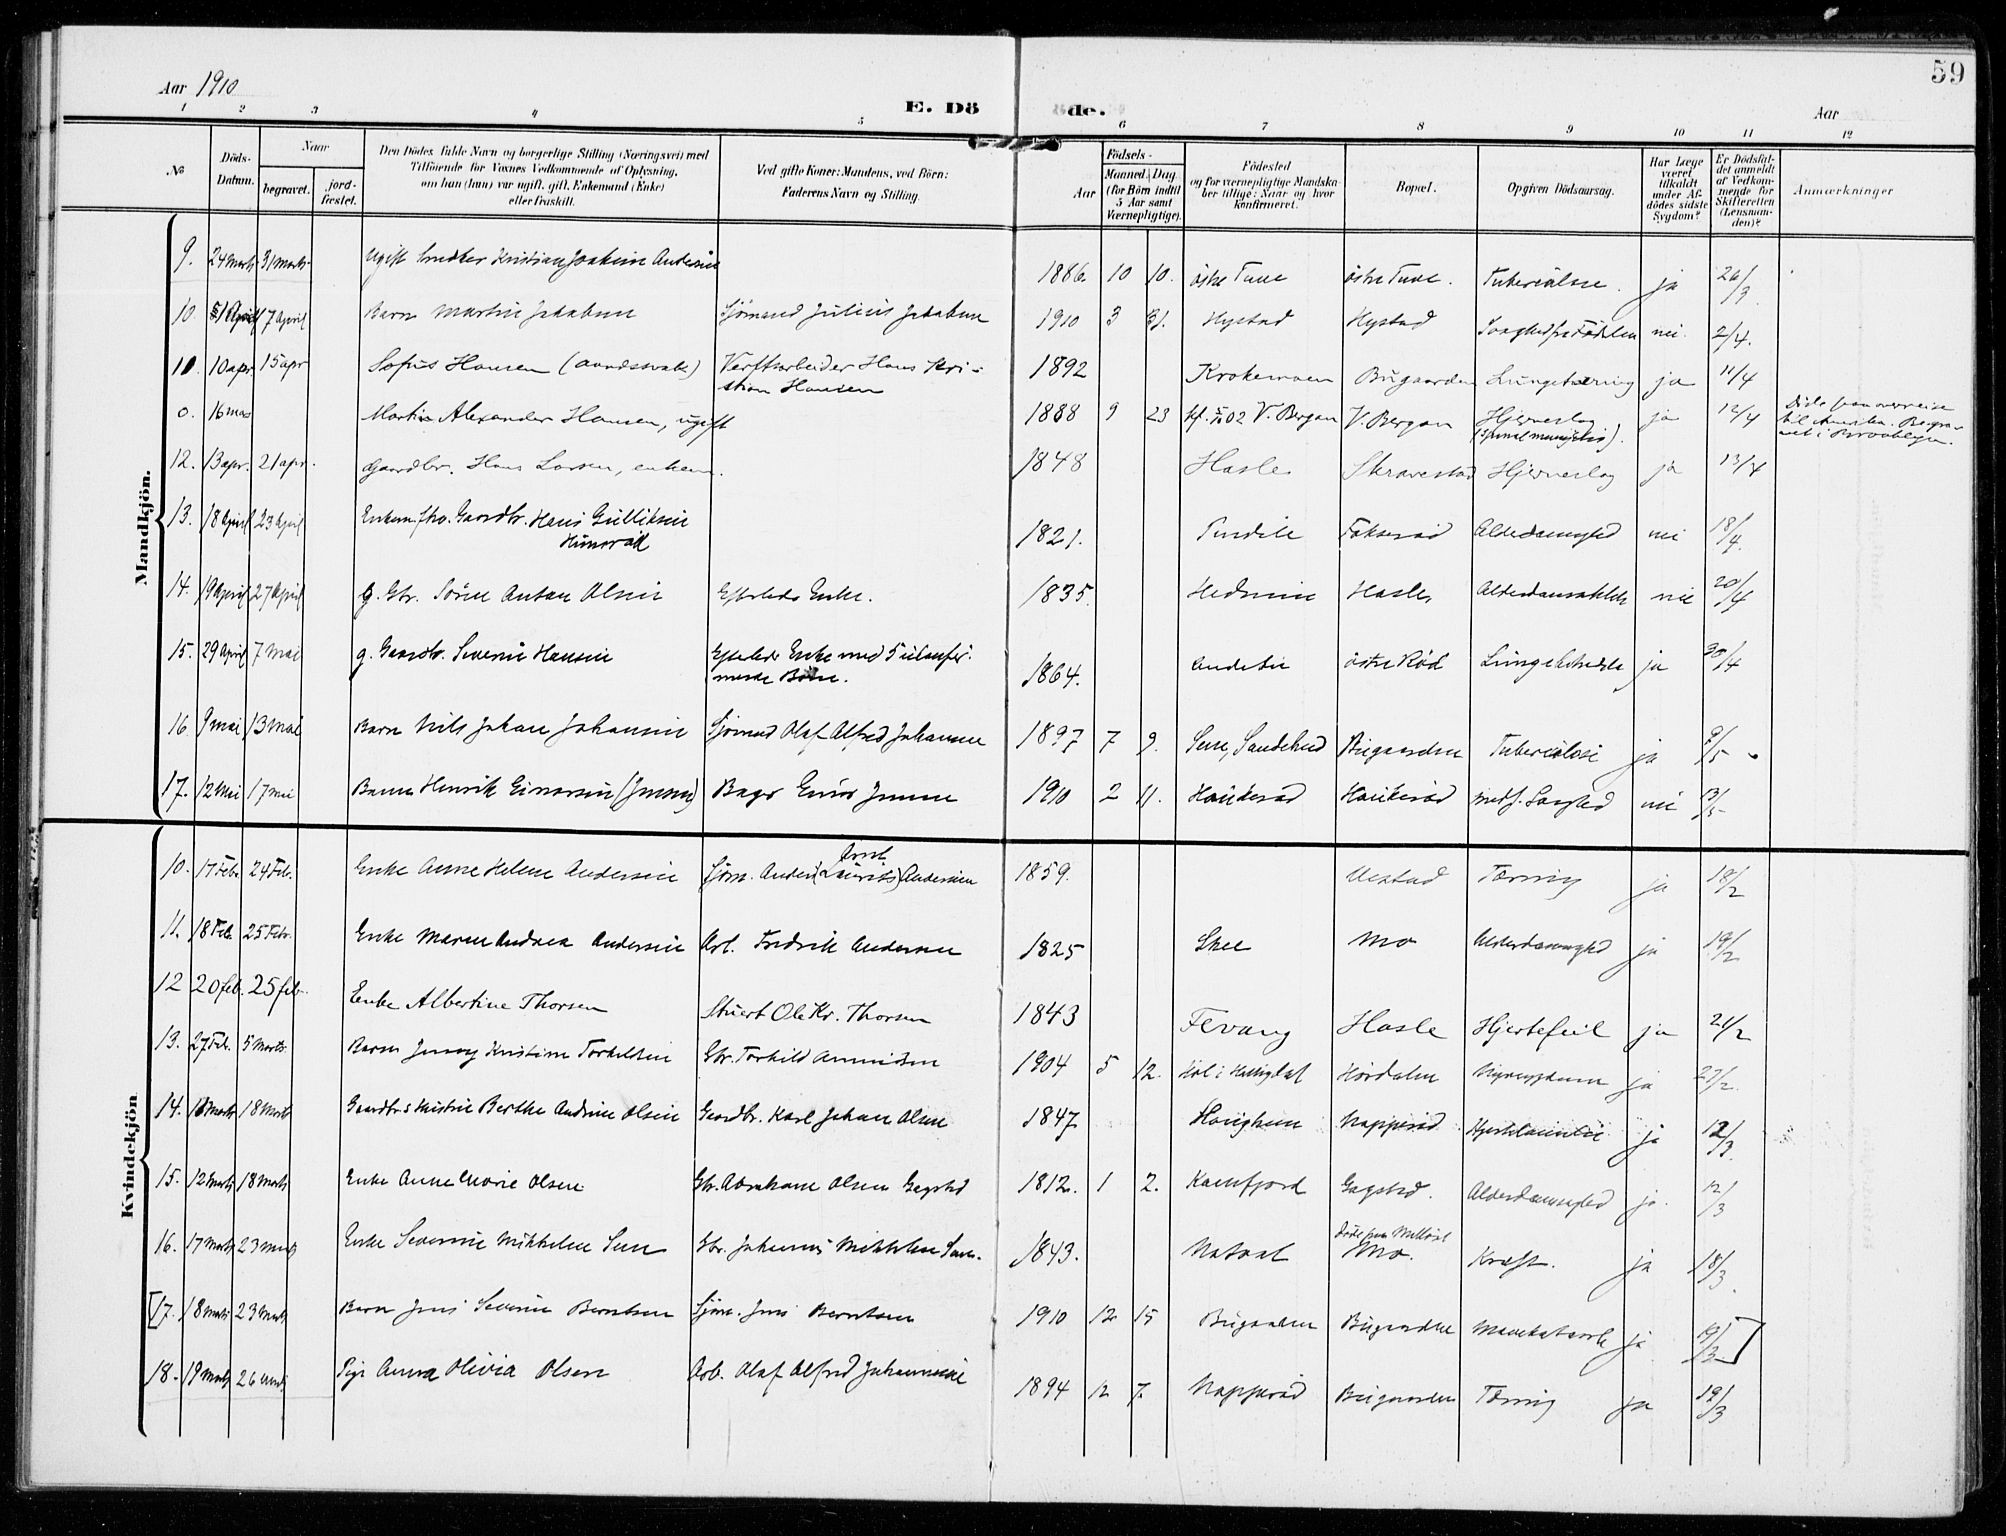 59
Aar 1910
E. Dö de.
Aar
1 2 3 4 5 6 7 8 9 10 11 12
№
Döds-Datum.
Naar
begravet.
jord-fæstet.
Den Dödes fulde Navn og borgerlige Stilling (Næringsvei) med
Tilföiende for Voxnes Vedkommende af Oplysning,
om han (hun) var ugift, gift, Enkemand (Enke)
eller fraskilt.
Ved gifte Koner: Mandens, ved Börn:
Faderens Navn og Stilling.
Födsels-
Aar
Maaned. Dag.
(for Börn indtil
5 Aar samt
Værnepligtige).
Födested
og for værnepligtige Mandska-
ber tillige: Naar og hvor
konfirmeret.
Bopæl.
Opgiven Dödsaarsag.
Har Læge
været
tilkaldt
under Af-
dödes sidste
Sygdom?
Er Dödsfal-
det anmeldt
af Vedkom-
mende for
Skifteretten
(Lensman-
den)?
Anmærkninger
Mandkjön.
9. 24 Marts 31 Marts Ugift Snedker Kristian Joakim Andersen 1886. 10 10. östre Tuve östre Tuve. Tuberculose. ja 26/3.
10. 31 April 7 April Barn Martin Jakobsen Sjömand Julius Jakobsen 1910 3 31. Hystad Hystad Svaghed fra Födselen nei. 2/4.
11. 10 apr 15 apr Sofus Hansen (aandssvak) Verftsarbeider Hans Kri-
stian Hansen 1892 Krokemoen Bugaarden Lungetæring ja 11/4
0. 16 mars Martin Alexander Hansen, ugift 1888 9 23 kf. 5/10 02 V. Bergan V. Bergan Hjerneslag
(Spinal meningitis). ja 12/4 Döde paa overreise
til Amerika. Begra-
vet i Brooklyn.
12. 13 apr. 21 apr. Gaardbr. Hans Larsen, enkem. 1848 Hasle Skravestad Hjerneslag ja 13/4
13. 18 April 23 April Enkem. fhv. Gaardbr. Hans Gulliksen
Himeraad 1821. Fokserød Alderdomssvaghed nei 18/4.
14. 19 April 27 April g. Gbr. Sören Anton Olsen Efterlader Enke. 1835. Hedenim Hasle, nei 20/4
15. 29 April 7 Mai g. Gaardbr. Severin Hansen Efterlader Enke med 5 ukonfir-
merede Börn. 1864. östre Röd Lungebetændelse ja 30/4
16 9 mai 13 Mai Barn Nils Johan Johansen Sjömand Olaf Alfred Johansen 1897 7 9. Sem, Sandeherred Bugaarden Tuberculose ja 9/5
17. 12 Mai 17 Mai Barn Henrik Einarsen (Jensen) Bager Einar Jensen 1910 2 11. Haukeröd Haukeröd medf. Svaghed nei 13/5
Kvindekjön.
10. 17 Febr 24 Feb. Enke Anne Helene Andersen Sjöm. Anders (Laurits) Andersen 1859. Unstad Tæring ja 18/2
11. 18 Feb. 25 Febr. Enke Maren Andrea Andersen Arb. Fredrik Andersen 1825 Skee Mo Alderdomssvaghed ja 19/2
12 20 feb. 25 feb. Enke Albertine Thorsen Stuert Ole Kr. Thorsen 1843 Fevang Hasle Hjertefeil ja 21/2
13. 27 Feb. 5 Marts Barn Jenny Kristine Torkelsen Gbr. Torkild Amundsen 1904 5 12. Hol i Hallingdal Hördalen Nyresygdom ja 27/2.
14. 11 Marts 18 Marts Gaardbrs hustru Berthe Andrine Olsen Gaardbr. Karl Johan Olsen 1847 Haughem Napperöd ja 12/3
15. 12 Marts 18 Marts Enke Anne Marie Olsen Gbr. Abraham Olsen Gogstad 1812. 1 2. Kamfjord Gogstad. Alderdomssvaghed ja. 12/3
16. 17 Marts 23 Marts Enke Severine Mikkelsen Sem Gbr. Johannes Mikkelsen Sem. 1843. Natval Döde paa Mellöst
Mo. Kræft. ja 18/3.
[17. 18 Marts 23 Marts Barn Jens Severin Berntsen Sjöm. Jens Berntsen 1910 12 15 Bugaarden Bugaarden Mavekatarrh ja 19/3]
18. 19 Marts 26 Marts Pige Anna Olivia Olsen Arb. Olaf Alfred Johannesen 1894 12 7. Napperöd Bugaarden Tæring ja 19/3